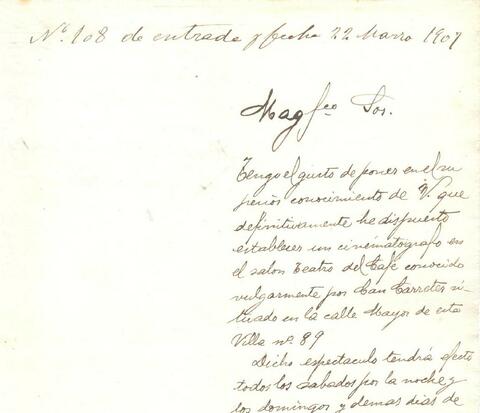 Nº 108 de entrada y fecha 22 Marzo 1907
Magfco Sor.
Tengo el gusto de poner en el su
perior conocimiento de V. que
definitivamente he dispuesto
establecer un cinematografo en
el salon Teatro del Café conocido
vulgarmente por Can Carreter si
tuado en la calle Mayor de esta
Villa nº 89
Dicho espectaculo tendrá efecto
todos los sabados por la noche y
los domingos y demas dias de